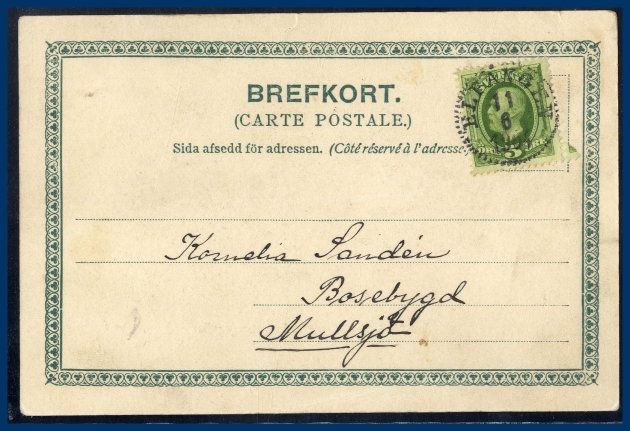 BREFKORT.
(CARTE POSTALE.)
Sida afsedd för adressen. (Côté réservé à l'adresse.
11
6
Kornelia Sandén
Bosebygd
Mullsjö